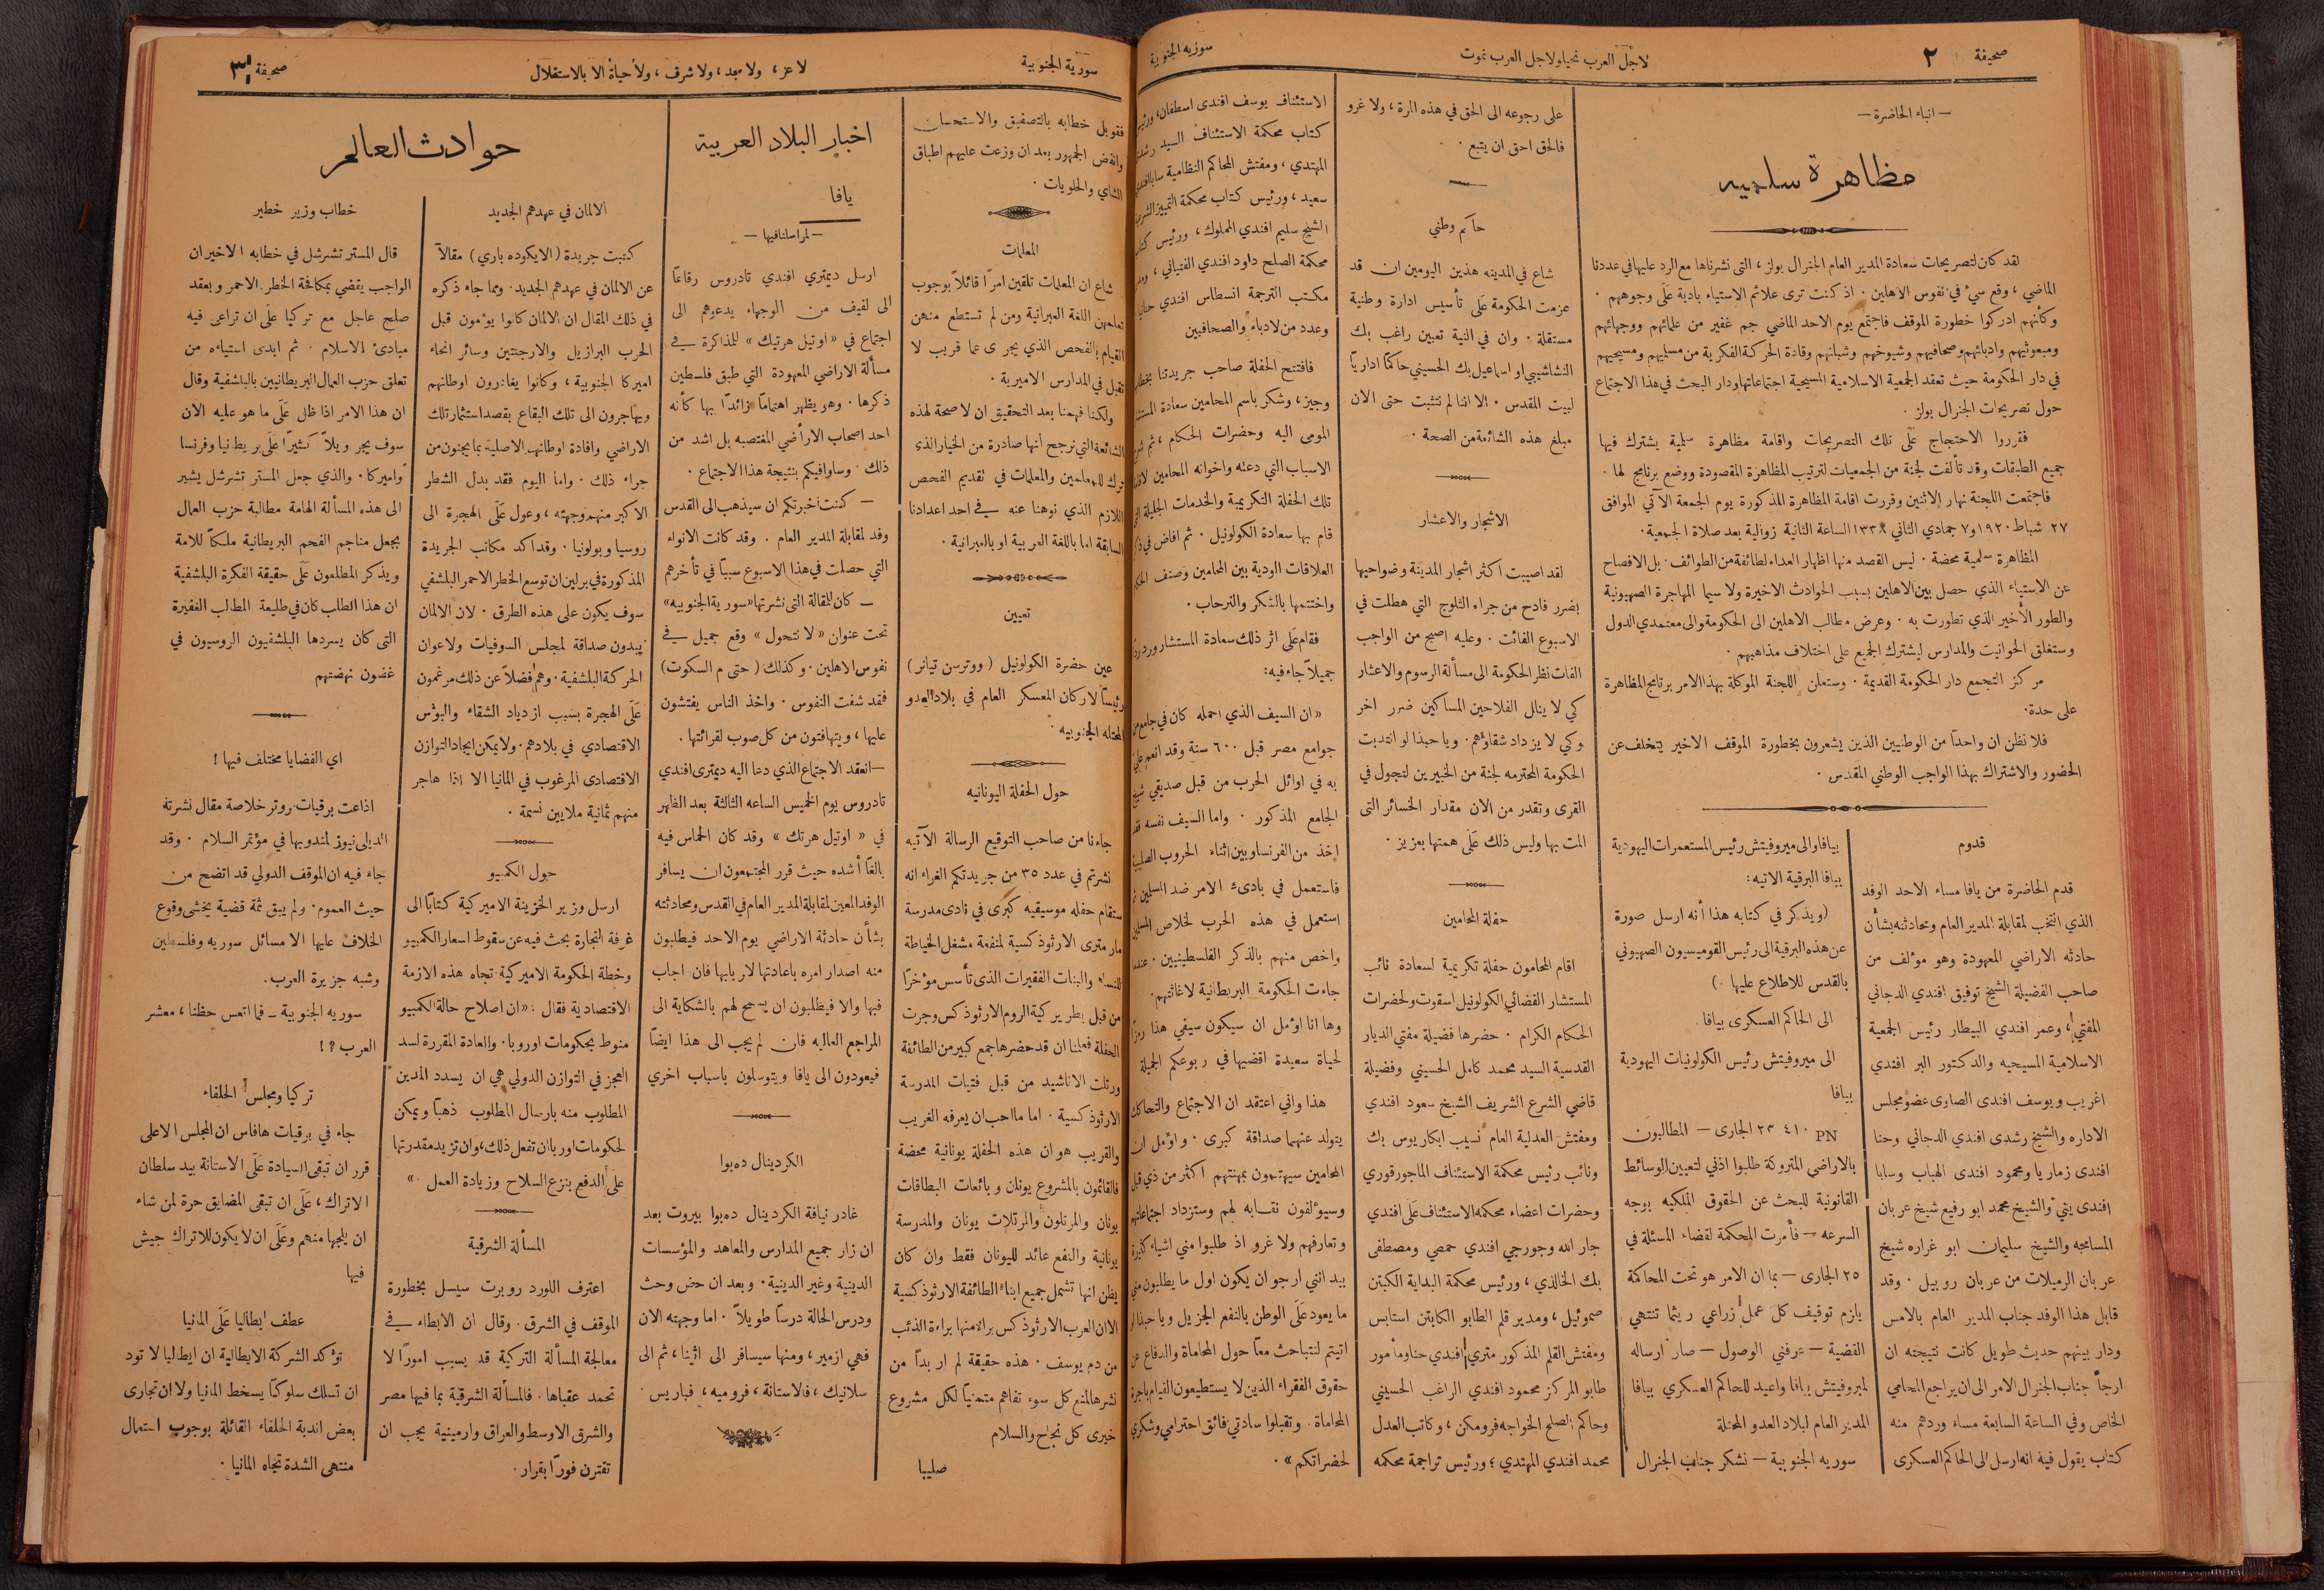 صحيفة ٢
لاجل العرب نحيا ولاجل العرب نموت
سورية الجنوبية
— انباء الحاضرة —
مظاهرة سلميه
لقد كان لتصريحات سعادة المدير العام الجنرال بولز ، التى نشرناها مع الرد عليها في عددنا
الماضي ، وقع سئ في نفوس الاهلين . اذ كنت ترى علائم الاستياء بادية عَلَى وجوههم .
وكأنهم ادركوا خطورة الموقف فاجتمع يوم الاحد الماضي جم غفير من علمائهم ووجهائهم
ومبعوثيهم وادبائهم وصحافيهم وشيوخهم وشبانهم وقادة الحركة الفكرية من مسلميهم ومسيحيهم
في دار الحكومة حيث تعقد الجمعية الاسلامية المسيحية اجتماعاتها ودار البحث في هذا الاجتماع
حول تصريحات الجنرال بولز .
فقرروا الاحتجاج عَلَى تلك التصريحات واقامة مظاهرة سلمية يشترك فيها
جميع الطبقات وقد تألفت لجنة من الجمعيات لترتيب المظاهرة المقصودة ووضع برنامج لها .
فاجتمعت اللجنة نهار الاثنين وقررت اقامة المظاهرة المذكورة يوم الجمعة الآتي الموافق
٢٧ شباط ١٩٢٠ و٧ جمادي الثاني ١٣٣٨ الساعة الثانية زوالية بعد صلاة الجمعية .
المظاهرة سلمية محضة . ليس القصد منها اظهار العداء لطائفة من الطوائف . بل الافصاح
عن الاستياء الذي حصل بين الاهلين بسبب الحوادث الاخيرة ولا سيما المهاجرة الصهيونية
والطور الأخير الذي تطورت به . وعرض مطالب الاهلين الى الحكومة والى معتمدي الدول
وستغلق الحوانيت والمدارس ليشترك الجميع على اختلاف مذاهبهم .
مركز التجمع دار الحكومة القديمة . وستعلن اللجنة الموكلة بهذا الامر برنامج المظاهرة
على حدة .
فلا نظن ان واحداً من الوطنيين الذين يشعرون بخطورة الموقف الاخير يتخلف عن
الحضور والاشتراك بهذا الواجب الوطني المقدس .
قدوم
قدم الحاضرة من يافا مساء الاحد الوفد
الذي انتخب لمقابلة المدير العام ومحادثته بشأن
حادثه الاراضي المعهودة وهو مؤلف من
صاحب الفضيلة الشيخ توفيق افندي الدجاني
المفتي ، وعمر افندي البيطار رئيس الجمعية
الاسلامية المسيحيه والدكتور البر افندي
اغريب ويوسف افندى الصاوى عضو مجلس
الاداره والشيخ رشدى افندي الدجاني وحنا
افندى زماريا ومحمود افندى الهباب وسابا
افندى يني والشيخ محمد ابو رفيع شيخ عربان
المسامجه والشيخ سليمان ابو غراره شيخ
عربان الرميلات من عربان روبيل . وقد
قابل هذا الوفد جناب المدير العام بالامس
ودار بينهم حديث طويل كانت نتيجته ان
ارجأ جناب الجنرال الامر الى ان يراجع المحامي
الخاص وفي الساعة السابعة مساء وردهم منه
كتاب يقول فيه انه ارسل الى الحاكم العسكرى
بيافا والى ميروفيتش رئيس المستعمرات اليهودية
بيافا البرقية الاتيه :
(ويذكر في كتابه هذا أنه ارسل صورة
عن هذه البرقية الى رئيس القوميسيون الصهيوني
بالقدس للاطلاع عليها .)
الى الحاكم العسكرى بيافا
الى ميروفيتش رئيس الكولونيات اليهودية
بيافا
PN ٤١٠ ٢٣ الجارى — المطالبون
بالاراضي المتروكة طلبوا اذني لتعيين الوسائط
القانونية للبحث عن الحقوق الملكيه بوجه
السرعه — فأمرت المحكمة لقضاء المسئلة في
٢٥ الجارى — بما ان الامر هو تحت المحاكمة
يلزم توقيف كل عمل زراعي ريثما تنتهي
القضية — عرفني الوصول — صار ارساله
لميروفيتش بيافا واعيد للحاكم العسكري بيافا
المدير العام لبلاد العدو المحتلة
سوريه الجنوبية — نشكر جناب الجنرال
على رجوعه الى الحق في هذه المرة ، ولا غرو
فالحق احق ان يتبع .
حاكم وطني
شاع في المدينه هذين اليومين ان قد
عزمت الحكومة عَلَى تأسيس ادارة وطنية
مستقلة . وان في النية تعيين راغب بك
النشاشيبي او اسماعيل بك الحسيني حاكماً ادارياً
لبيت المقدس . الا اننا لم نتثبت حتى الان
مبلغ هذه الشائعة من الصحة .
الاشجار والاعشار
لقد اصيبت اكثر اشجار المدينة وضواحيها
بضرر فادح من جراء الثلوج التي هطلت في
الاسبوع الفائت . وعليه اصبح من الواجب
الفات نظر الحكومة الى مسألة الرسوم والاعشار
كي لا ينال الفلاحين المساكين ضرر اخر
وكي لا يزداد شقاؤهم . ويا حبذا لو انتدبت
الحكومة المحترمه لجنة من الخبيرين لتجول في
القرى وتقدر من الان مقدار الخسائر التى
المت بها وليس ذلك عَلَى همتها بعزيز .
حفلة المحامين
اقام المحامون حفلة تكريمية لسعادة نائب
المستشار القضائي الكولونيل اسقوت ولحضرات
الحكام الكرام . حضرها فضيلة مفتي الديار
القدسية السيد محمد كامل الحسيني وفضيلة
قاضي الشرع الشريف الشيخ سعود افندي
ومفتش العدلية العام نسيب ابكاريوس بك
ونائب رئيس محكمة الاستئناف الماجور قوري
وحضرات اعضاء محكمة الاستئناف عَلَى افندي
جار الله وجورجي افندي حمصي ومصطفى
بك الخالدي ، ورئيس محكمة البداية الكبتن
صموئيل ، ومدير قلم الطابو الكابتن استابس
ومفتش القلم المذكور متري افندي حنا ومأمور
طابو المركز محمود افندي الراغب الحسيني
وحاكم الصلح الخواجه فرومكن ، وكاتب العدل
محمد افندي المهتدي ؛ ورئيس تراجمة محكمه
الاستئناف يوسف افندى اسطفان ، ورئيس
كتاب محكمة الاستئناف السيد رشدي
المهتدي ، ومفتش المحاكم النظامية سابا افندي
سعيد ، ورئيس كتاب محكمة التمييز الشرعية
الشيخ سليم افندي المملوك ، ورئيس كتاب
محكمة الصلح داود افندي الفتياني ،
مكتب الترجمة انسطاس افندي حنانيا
وعدد من لادباء والصحافيين
فافتتح الحفلة صاحب جريدتنا بخطاب
وجيز ، وشكر باسم المحامين سعادة المستشار
المومى اليه وحضرات الحكام ، ثم شرح
الاسباب التي دعته واخوانه المحامين لاقامة
تلك الحفلة التكريمية والخدمات الجليلة التي
قام بها سعادة الكولونيل . ثم افاض في ذكر
العلاقات الودية بين المحامين وصنف الحكام
واختتمها بالشكر والترحاب .
فقام عَلَى اثر ذلك سعادة المستشار ورد رداً
جميلاً جاء فيه :
« ان السيف الذي احمله كان في جامع من
جوامع مصر قبل ٦٠٠ سنة وقد انعم علي
به في اوائل الحرب من قبل صديقي شيخ
الجامع المذكور . واما السيف نفسه فقد
اخذ من الفرنساويين اثناء الحروب الصليبية
فاستعمل في بادىء الامر ضد المسلمين ثم
استعمل في هذه الحرب لخلاص المسلمين
واخص منهم بالذكر الفلسطينيين . عندما
جاءت الحكومة البريطانية لاغاثتهم .
وها انا اؤمل ان سيكون سيفي هذا رمزاً
لحياة سعيدة اقضيها في ربوعكم الجميلة
هذا واني اعتقد ان الاجتماع والتحاكك
يتولد عنهما صداقة كبرى . واؤمل ان
المحامين سيهتمون بمهنتهم اكثر من ذي قبل
وسيؤلفون نقابه لهم وستزداد اجتماعاتهم
وتعارفهم ولا غرو اذ طلبوا مني اشياء كثيرة
بيد انني ارجو ان يكون اول ما يطلبون مني
ما يعود عَلَى الوطن بالنفع الجزيل ويا حبذا لو
اتيتم لنتباحث معاً حول المحاماة والدفاع عن
حقوق الفقراء الذين لا يستطيعون القيام باجرة
المحاماة . وتقبلوا سادتي فائق احترامي وشكري
لحضراتكم » .
سورية الجنوبية
لا عز ، ولا مجد ، ولا شرف ، ولا حياة الا بالاستقلال
صحيفة ٣
فقوبل خطابه بالتصفيق والاستحسان
وانفض الجمهور بعد ان وزعت عليهم اطباق
الشاي والحلويات .
المعلمات
شاع ان المعلمات تلقين امراً قائلاً بوجوب
تعلمهن اللغة العبرانية ومن لم تستطع منهن
القيام بالفحص الذي يجرى عما قريب لا
تقبل في المدارس الاميرية .
ولكنا فهمنا بعد التحقيق ان لا صحة لهذه
الشائعة التي نرجح انها صادرة من الخيار الذي
ترك للمعلمين والمعلمات في تقديم الفحص
اللازم الذي نوهنا عنه في احد اعدادنا
السابقة اما باللغة العربية او بالعبرانية .
تعيين
عين حضرة الكولونيل ( ووترسن تيانر )
رئيساً لاركان المعسكر العام في بلاد العدو
المحتله الجنوبيه .
حول الحفلة اليونانيه
جاءنا من صاحب التوقيع الرسالة الآتيه
نشرتم في عدد ٣٥ من جريدتكم الغراء انه
ستقام حفله موسيقيه كبرى في نادى مدرسة
مار مترى الارثوذكسية لمنفعة مشغل الخياطة
للنساء والبنات الفقيرات الذى تأسس مؤخراً
من قبل بطريركية الروم الارثوذكس وجرت
الحفلة فعلمنا ان قد حضرها جمع كبير من الطائفة
ورتلت الاناشيد من قبل فتيات المدرسة
الارثوذكسية . اما ما احب ان يعرفه الغريب
والقريب هو ان هذه الحفلة يونانية محضة
فالقائمون بالمشروع يونان وبائعات البطاقات
يونان والمرتلون والمرتلات يونان والمدرسة
يونانية والنفع عائد لليونان فقط وان كان
يظن انها تشمل جميع ابناء الطائفة الارثوذكسية
الا ان العرب الارثوذكس براء منها براءة الذئب
من دم يوسف . هذه حقيقة لم ار بداً من
نشرها لمنع كل سوء تفاهم متمنياً لكل مشروع
خيرى كل نجاح والسلام
صليبا
اخبار البلاد العربية
يافا
— لمراسلنا فيها —
ارسل ديمتري افندي تادروس رقاعاً
الى لفيف من الوجهاء يدعوهم الى
اجتماع في « اوتيل هرتيك » للمذاكرة في
مسألة الاراضي المعهودة التي طبق فلسطين
ذكرها . وهر يظهر اهتماماً زائداً بها كأنه
احد اصحاب الارأضي المغتصبه بل اشد من
ذلك . وساوافيكم بنتيجة هذا الاجتماع .
— كنت اخبرتكم ان سيذهب الى القدس
وفد لمقابلة المدير العام . وقد كانت الانواء
التي حصلت في هذا الاسبوع سبباً في تأخرهم
— كان للمقالة التى نشرتها « سورية الجنوبيه »
تحت عنوان « لا نتحول » وقع جميل في
نفوس الاهلين . وكذلك ( حتى م السكوت )
فقد شفت النفوس . واخذ الناس يفتشون
عليها ، ويتهافتون من كل صوب لقرائتها .
— انعقد الاجتماع الذي دعا اليه ديمترى افندي
تادروس يوم الخميس الساعه الثالثة بعد الظهر
في « اوتيل هرتك » وقد كان الحماس فيه
بالغاً أشده حيث قرر المجتمعون ان يسافر
الوفد المعين لمقابلة المدير العام في القدس ومحادثته
بشأن حادثة الاراضي يوم الاحد فيطلبون
منه اصدار امره باعادتها لاربابها فان اجاب
فبها والا فيطلبون ان يسمح لهم بالشكاية الى
المراجع العاليه فان لم يجب الى هذا ايضاً
فيعودون الى يافا ويتوسلون باسباب اخري
الكردينال ده بوا
غادر نيافة الكردينال ده بوا بيروت بعد
ان زار جميع المدارس والمعاهد والمؤسسات
الدينية وغير الدينية . وبعد ان حض وحث
ودرس الحالة درساً طويلاً . اما وجهته الان
فهي ازمير ، ومنها سيسافر الى اثينا ، ثم الى
سلانيك ، فالاستانة ، فروميه ، فباريس .
حوادث العالم
الالمان في عهدهم الجديد
كتبت جريدة ( الايكوده باري ) مقالاً
عن الالمان في عهدهم الجديد . ومما جاء ذكره
في ذلك المقال ان الالمان كانوا يؤمون قبل
الحرب البرازيل والارجنتين وسائر انحاء
اميركا الجنوبية ، وكانوا يغادرون اوطانهم
ويهاجرون الى تلك البقاع بقصد استثمار تلك
الاراضي وافادة اوطانهم الاصلية بما يجنون من
جراء ذلك . واما اليوم فقد بدل الشطر
الاكبر منهم وجهته ، وعول عَلَى الهجرة الى
روسيا وبولونيا . وقد اكد مكاتب الجريدة
المذكورة في برلين ان توسع الخطر الاحمر البلشفي
سوف يكون على هذه الطرق . لان الالمان
يبدون صداقة لمجلس السوفيات ولاعوان
الحركة البلشفية . وهم فضلاً عن ذلك مرغمون
عَلَى الهجرة بسبب ازدياد الشقاء والبؤس
الاقتصادي في بلادهم . ولا يمكن ايجاد التوازن
الاقتصادى المرغوب في المانيا الا اذا هاجر
منهم ثمانية ملايين نسمة .
حول الكمبيو
ارسل وزير الخزينة الاميركية كتاباً الى
غرفة التجارة بحث فيه عن سقوط اسعار الكمبيو
وخطة الحكومة الاميركية تجاه هذه الازمة
الاقتصادية فقال : « ان اصلاح حالة الكمبيو
منوط بحكومات اوروبا . والعادة المقررة لسد
العجز في التوازن الدولي هي ان يسدد المدين
المطلوب منه بارسال المطلوب ذهباً ويمكن
لحكومات اوربا ان تفعل ذلك ، وان تزيد مقدرتها
على الدفع بنزع السلاح وزيادة العمل . »
المسألة الشرقية
اعترف اللورد روبرت سيسل بخطورة
الموقف في الشرق . وقال ان الابطاء في
معالجة المسألة التركية قد يسبب اموراً لا
تحمد عقباها . فالمسألة الشرقية بما فيها مصر
والشرق الاوسط والعراق وارمينية يجب ان
تقترن فوراً بقرار .
خطاب وزير خطير
قال المستر تشرشل في خطابه الاخير ان
الواجب يقضي بمكافحة الخطر الاحمر وبعقد
صلح عاجل مع تركيا عَلَى ان تراعى فيه
مبادئ الاسلام . ثم ابدى استياءه من
تعلق حزب العمال البريطانيين بالبلشفية وقال
ان هذا الامر اذا ظل عَلَى ما هو عليه الان
سوف يجر ويلاً كثيراً عَلَى بريطانيا وفرنسا
واميركا . والذي جعل المستر تشرشل يشير
الى هذه المسألة الهامة مطالبة حزب العمال
بجعل مناجم الفحم البريطانية ملكاً للامة
ويذكر المطلعون عَلَى حقيقة الفكرة البلشفية
ان هذا الطلب كان في طليعة المطالب الغفيرة
التى كان يسردها البلشفيون الروسيون في
غضون نهضتهم
اي القضايا مختلف فيها !
اذاعت برقيات روتر خلاصة مقال نشرته
الديلى نيوز لمندوبها في مؤتمر السلام . وقد
جاء فيه ان الموقف الدولي قد اتضح من
حيث العموم . ولم يبق ثمة قضية يخشى وقوع
الخلاف عليها الا مسائل سوريه وفلسطين
وشبه جزيرة العرب .
سوريه الجنوبية — فما اتعس حظنا ، معشر
العرب ؟ !
تركيا ومجلس الحلفاء
جاء في برقيات هافاس ان المجلس الاعلى
قرر ان تبقى السيادة عَلَى الاستانة بيد سلطان
الاتراك ، عَلَى ان تبقى المضايق حرة لمن شاء
ان يلجها منهم وعَلَى ان لا يكون للاتراك جيش
فيها
عطف ايطاليا عَلَى المانيا
تؤكد الشركة الايطالية ان ايطاليا لا تود
ان تسلك سلوكاً يسخط المانيا ولا ان تجارى
بعض اندية الحلفاء القائلة بوجوب استعمال
منتهى الشدة تجاه المانيا .